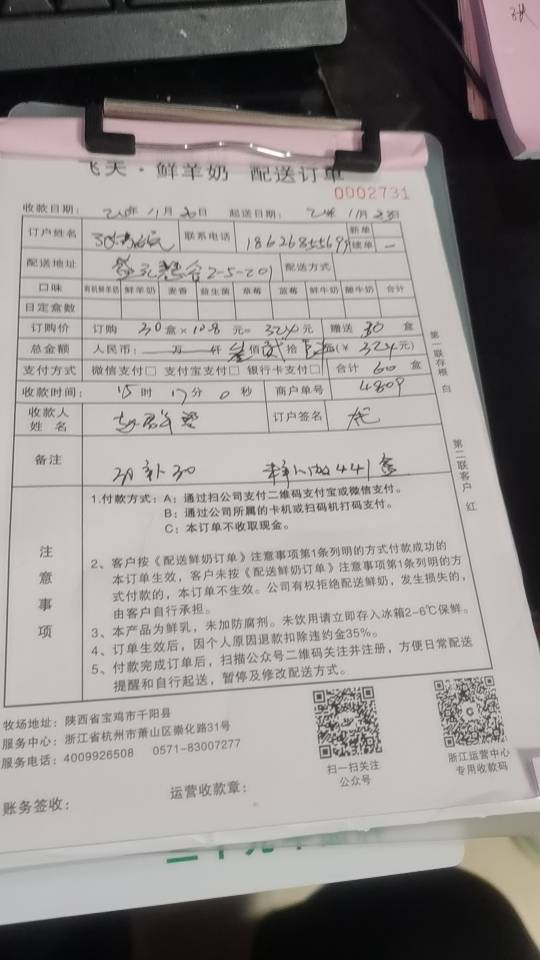 飞天·鲜羊奶 配送订单
0002731
收款日期: 11月30日 起送日期: 11月 日
订户姓名 联系电话 新单 续单
配送地址 2-5-201 配送方式
口味 有机鲜羊奶 鲜羊奶 麦香 益生菌 草莓 蓝莓 鲜牛奶 酸牛奶 合计
日定盒数
订购价 订购 30 盒× 10.8 元= 324 元 赠送 30 盒
总金额 人民币: 万 仟 叁 佰 贰 拾 (¥ 324元)
支付方式 微信支付□ 支付宝支付□ 银行卡支付□ 合计 60 盒
收款时间: 15 时 17 分 0 秒 商户单号 4809
收款人姓名 订户签名
备注 30 441盒
注意事项
1.付款方式: A: 通过扫公司支付二维码支付宝或微信支付。
B: 通过公司所属的卡机或扫码机打码支付。
C: 本订单不收取现金。
2、客户按《配送鲜奶订单》注意事项第1条列明的方式付款成功的
本订单生效，客户未按《配送鲜奶订单》注意事项第1条列明的方
式付款的，本订单不生效。公司有权拒绝配送鲜奶，发生损失的，
由客户自行承担。
3、本产品为鲜乳，未加防腐剂。未饮用请立即存入冰箱2-6℃保鲜。
4、订单生效后，因个人原因退款扣除违约金35%。
5、付款完成订单后，扫描公众号二维码关注并注册，方便日常配送
提醒和自行起送，暂停及修改配送方式。
第一联存根 白
第二联客户 红
牧场地址: 陕西省宝鸡市千阳县
服务中心: 浙江省杭州市萧山区崇化路31号
服务电话: 4009926508 0571-83007277
扫一扫关注
公众号
浙江运营中心
专用收款码
账务签收: 运营收款章: